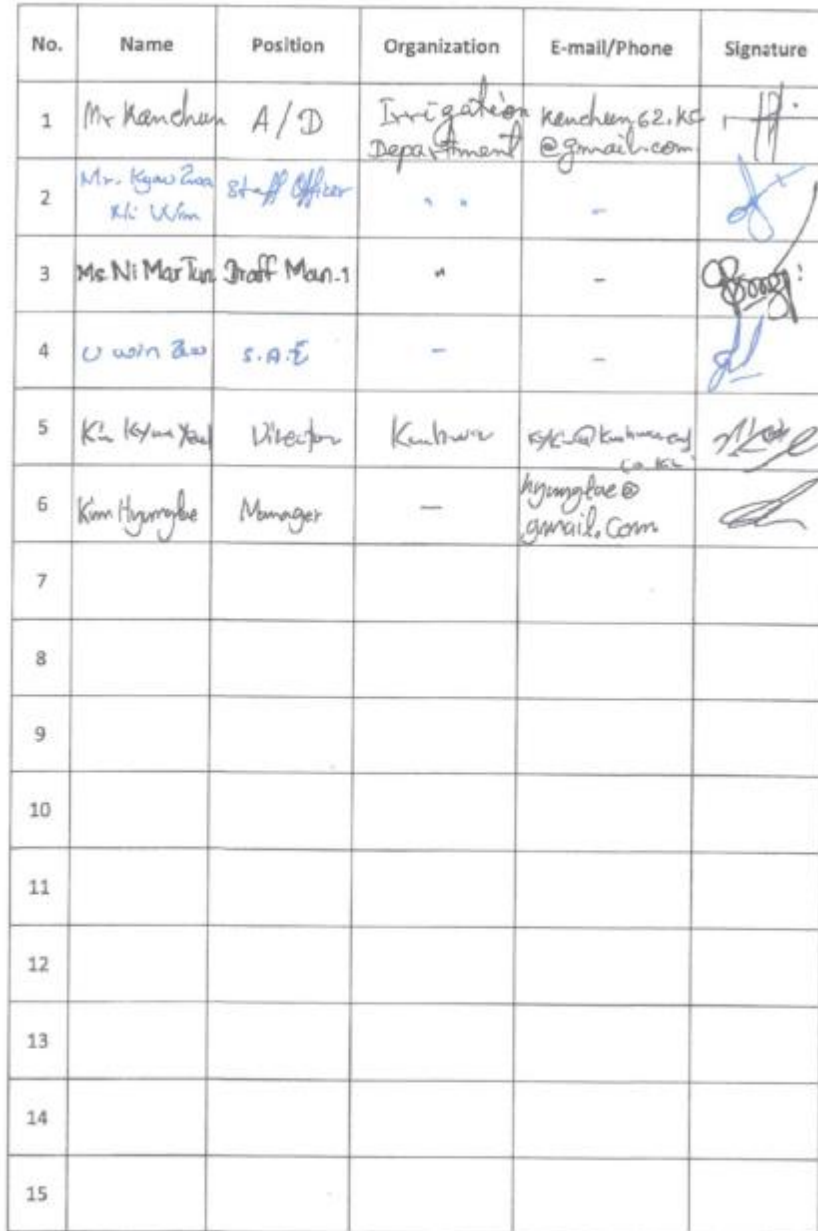 No. Name Position Organization E-mail/Phone Signature
1 Mr Kanchun A/D Irrigation Department kenchun62.kc @gmail.com
2 Mr. Kyaw Zwa Win Staff Officer " " -
3 Ms Ni Mar Tun Draff Man-1 " -
4 U Win Zaw S.A.E - -
5 Director
6 Kim Hyungtae Manager - hyungtae@ gmail.com
7
8
9
10
11
12
13
14
15